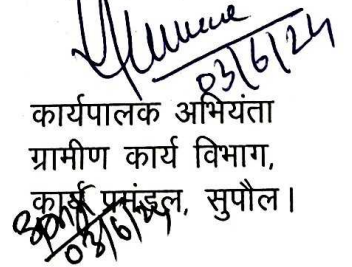 03/6/24
कार्यपालक अभियंता
ग्रामीण कार्य विभाग,
कार्य प्रमंडल, सुपौल।
03/6/24